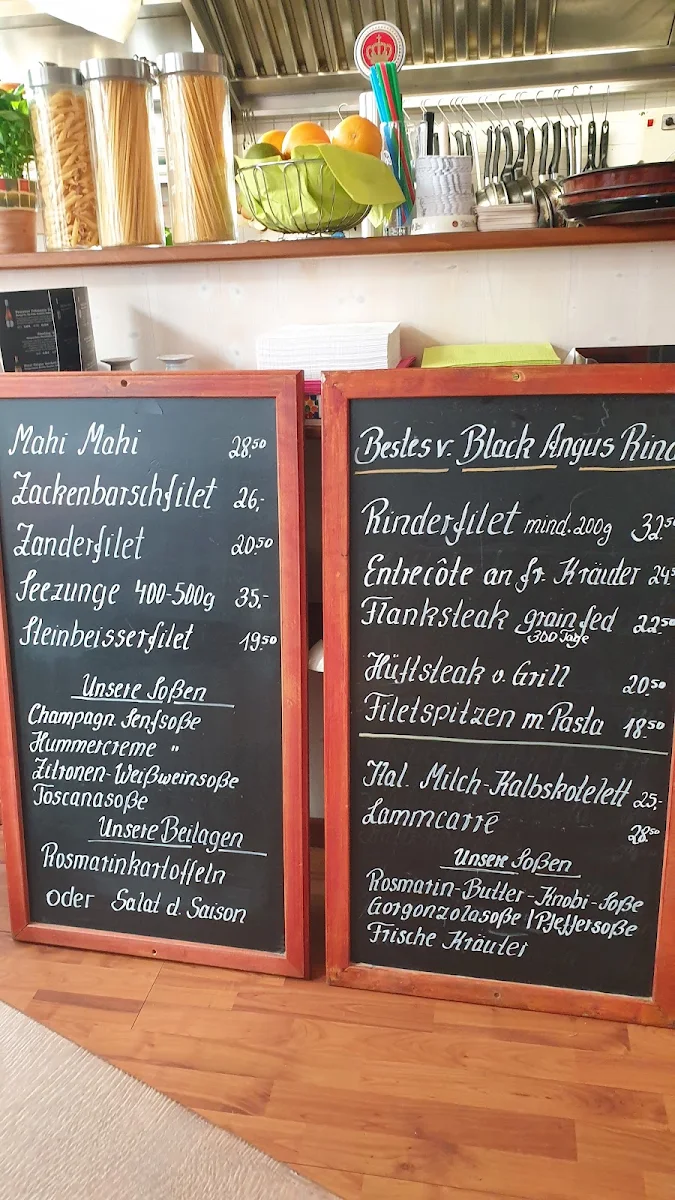 Mahi Mahi 28.50
Zackenbarschfilet 26,-
Zanderfilet 20.50
Seezunge 400-500g 35.-
Steinbeisserfilet 19.50
Unsere Soßen
Champagn. Senfsoße
Hummercreme "
Zitronen-Weißweinsoße
Toscanasoße
Unsere Beilagen
Rosmarinkartoffeln
oder Salat d. Saison
Bestes v. Black Angus Rind
Rinderfilet mind. 200g 32.50
Entrecôte an fr. Kräuter 24.5
Flanksteak grain fed 22.50
300 Tage
Hüftsteak v. Grill 20.50
Filetspitzen m. Pasta 18.50
Ital. Milch-Kalbskotelett 25.-
Lammcarré 28.50
Unsere Soßen
Rosmarin-Butter-Knobi-Soße
Gorgonzolasoße / Pfeffersoße
Frische Kräuter